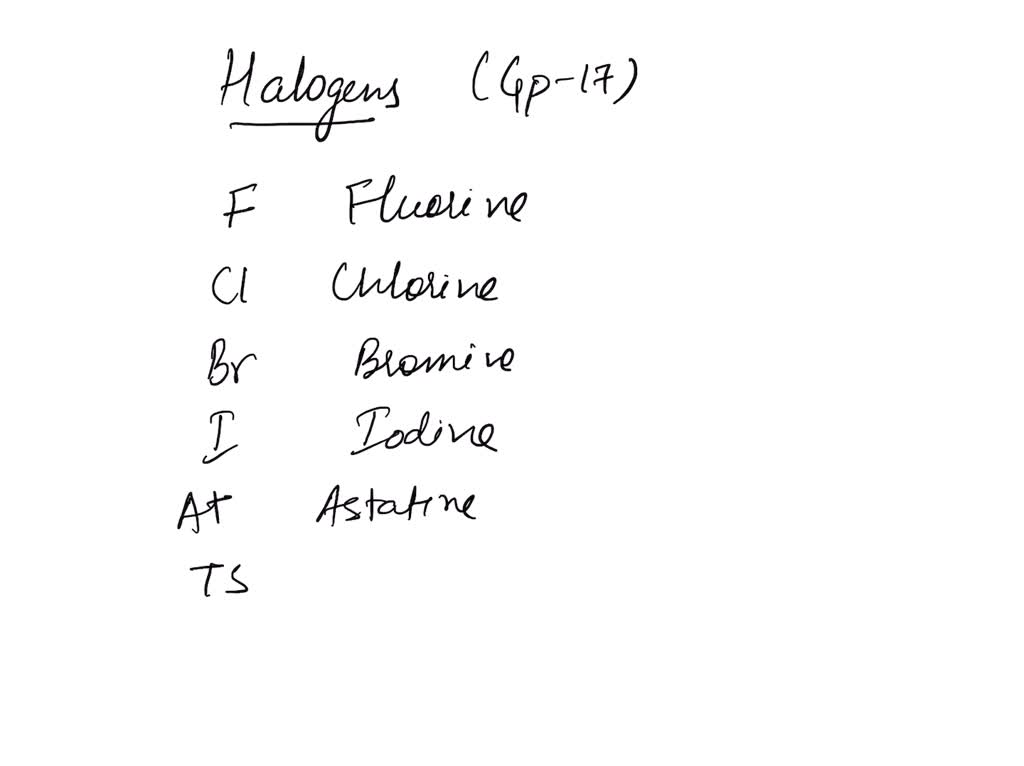 Halogens (Gp-17)
F Fluorine
Cl Chlorine
Br Bromine
I Iodine
At Astatine
TS